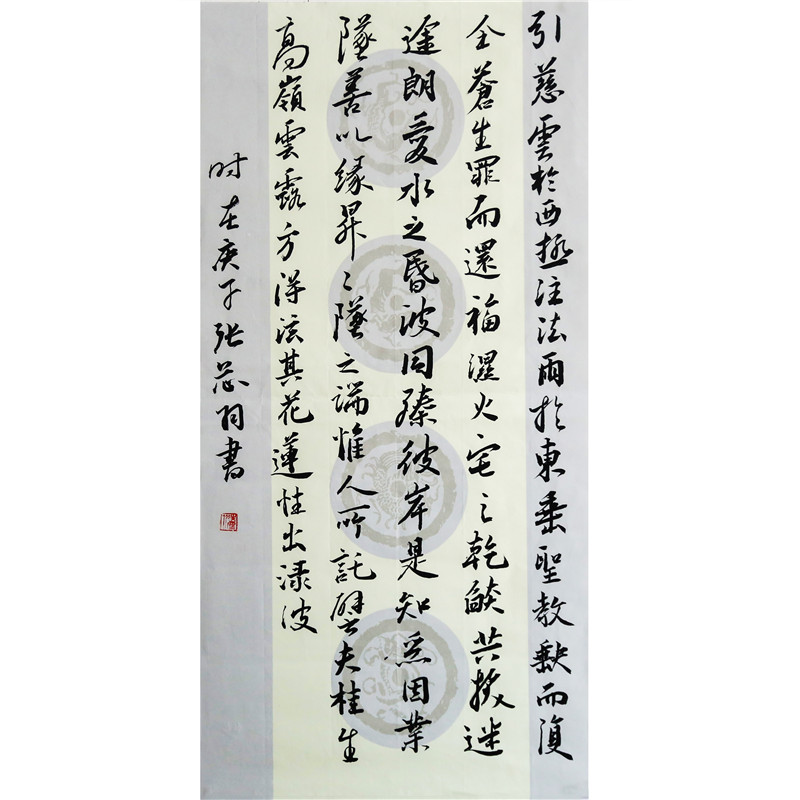 引慈雲於西極注法雨於東垂聖教缺而復
全蒼生罪而還福濕火宅之乾燄共拔迷
途朗愛水之昏波同臻彼岸是知惡因業
墜善以緣昇〻墜之端惟人所託譬夫桂生
高嶺雲露方得泫其花蓮性出淥波
时在庚子张芯羽書